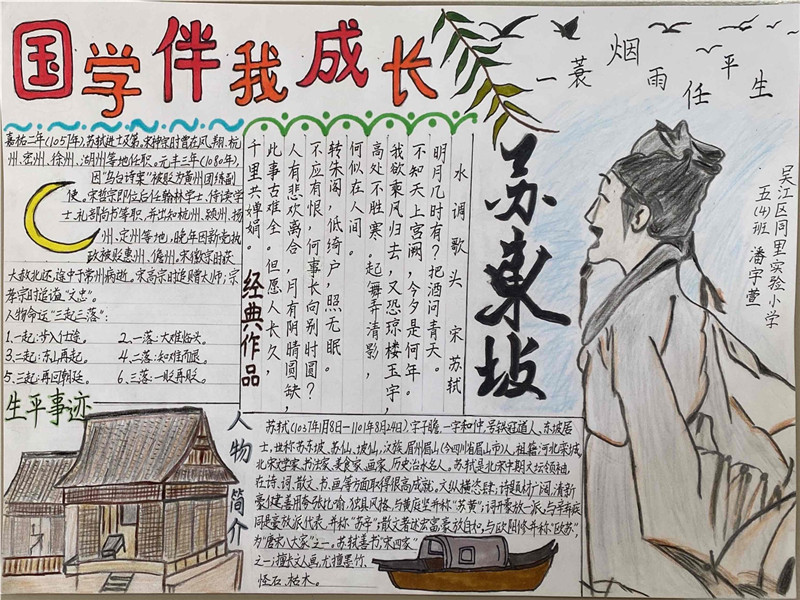 国学伴我成长
一蓑烟雨任平生
苏东坡
吴江区同里实验小学
五(4)班 潘宇萱
嘉祐二年(1057年),苏轼进士及第。宋神宗时曾在凤翔、杭
州、密州、徐州、湖州等地任职。元丰三年(1080年),
因“乌台诗案”被贬为黄州团练副
使。宋哲宗即位后任翰林学士、侍读学
士、礼部尚书等职,并出知杭州、颍州、扬
州、定州等地,晚年因新党执
政被贬惠州、儋州。宋徽宗时获
大赦北还,途中于常州病逝。宋高宗时追赠太师;宋
孝宗时追谥“文忠”。
人物命运“三起三落”:
1.一起:步入仕途。 2.一落:大难临头。
3.二起:东山再起。 4.二落:知难而退。
5.三起:再回朝廷。 6.三落:一贬再贬。
生平事迹
水调歌头 宋 苏轼
明月几时有?把酒问青天。
不知天上宫阙,今夕是何年。
我欲乘风归去,又恐琼楼玉宇,
高处不胜寒。起舞弄清影,
何似在人间。
转朱阁,低绮户,照无眠。
不应有恨,何事长向别时圆?
人有悲欢离合,月有阴晴圆缺,
此事古难全。但愿人长久,
千里共婵娟。
经典作品
人物简介
苏轼(1037年1月8日—1101年8月24日),字子瞻,一字和仲,号铁冠道人、东坡居
士,世称苏东坡、苏仙、坡仙,汉族,眉州眉山(今四川省眉山市)人,祖籍河北栾城,
北宋文学家、书法家、美食家、画家,历史治水名人。苏轼是北宋中期文坛领袖,
在诗、词、散文、书、画等方面取得很高成就。文纵横恣肆;诗题材广阔,清新
豪健,善用夸张比喻,独具风格,与黄庭坚并称“苏黄”;词开豪放一派,与辛弃疾
同是豪放派代表,并称“苏辛”;散文著述宏富,豪放自如,与欧阳修并称“欧苏”,
为“唐宋八大家”之一。苏轼善书,“宋四家”
之一;擅长文人画,尤擅墨竹、
怪石、枯木。